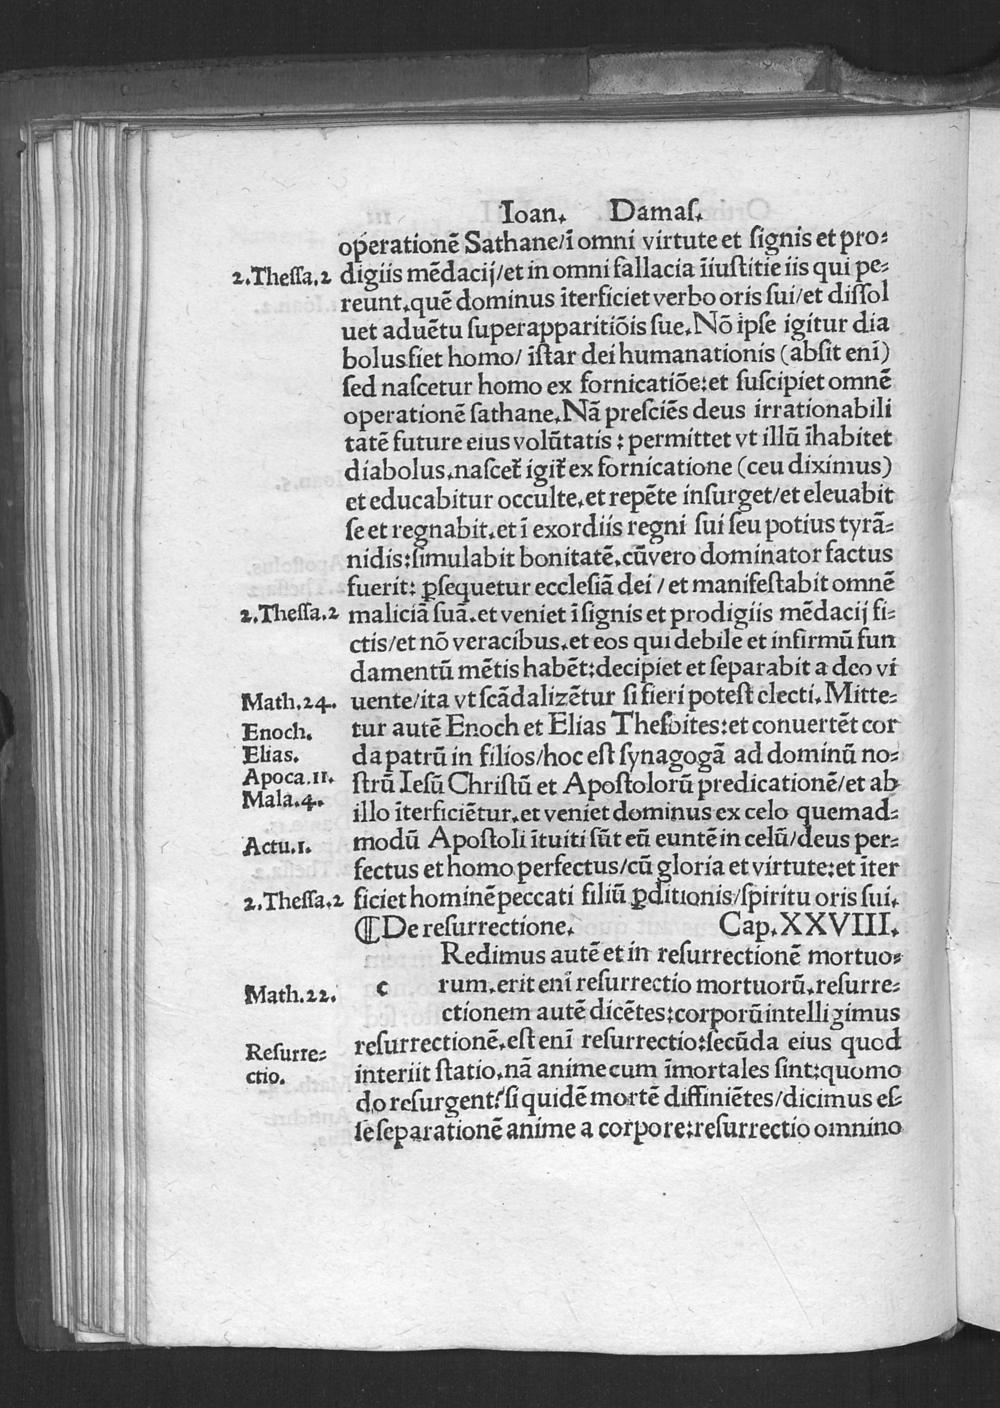 Ioan. Damaſ.
operationē Sathane/ī omni virtute et ſignis et pro:
2.Theſſa.2 digiis mēdacij/et in omni fallacia īiuſtitie iis qui pe:
reunt.quē dominus īterficiet verbo oris ſui/et diſſol
uet aduētu ſuperapparitiōis ſue.Nō ipſe igitur dia
bolus.fiet homo/ īſtar dei humanationis (abſit enī)
ſed naſcetur homo ex fornicatiōe:et ſuſcipiet omnē
operationē ſathane.Nā preſciēs deus irrationabili
tatē future eius volūtatis : permittet vt illū īhabitet
diabolus.naſcet᷑ igit᷑ ex fornicatione (ceu diximus)
et educabitur occulte.et repēte inſurget/et eleuabit
ſe et regnabit.et ī exordiis regni ſui ſeu potius tyrā:
nidis:ſimulabit bonitatē.cūvero dominator factus
fuerit: ꝑſequetur eccleſiā dei / et manifeſtabit omnē
2.Theſſa.2 maliciā ſuā.et veniet ī ſignis et prodigiis mēdacij fi:
ctis/et nō veracibus.et eos qui debile et infirmū fun
damentū mētis habēt:decipiet et ſeparabit a deo vi
Math.24. uente/ita vt ſcādalizētur ſi fieri poteſt electi.Mitte:
Enoch. tur autē Enoch et Elias Theſbites:et conuertēt cor
Elias. da patrū in filios/hoc eſt ſynagogā ad dominū no:
Apoca.11. ſtrū Ieſū Chriſtū et Apoſtolorū predicationē/et ab
Mala.4. illo īterficiētur.et veniet dominus ex celo quemad:
Actu.1. modū Apoſtoli ītuiti ſūt eū euntē in celū/deus per:
fectus et homo perfectus/cū gloria et virtute:et īter
2.Theſſa.2 ficiet hominē peccati filiū ꝑditionis/ſpiritu oris ſui.
⁋De reſurrectione. Cap.XXVIII.
Redimus autē et in reſurrectionē mortuo:
Math.22. c rum.erit enī reſurrectio mortuorū.reſurre:
ctionem autē dicētes:corporū intelligimus
Reſurre: reſurrectionē.eſt enī reſurrectio:ſecūda eius quod
ctio. interiit ſtatio.nā anime cum īmortales ſint:quomo
do reſurgent?ſi quidē mortē diffiniētes/dicimus eſ:
ſe ſeparationē anime a corpore:reſurrectio omnino